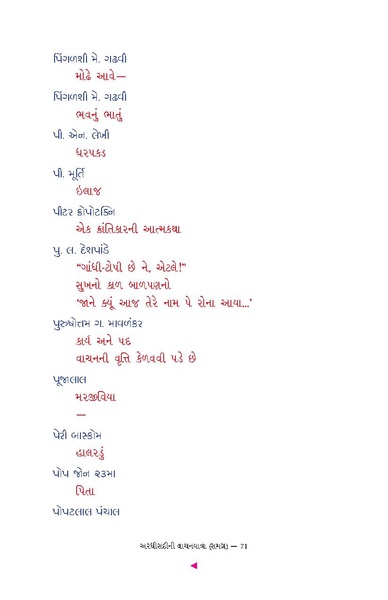 પિંગળશી મે. ગઢવી
મોઢે આવે—
પિંગળશી મે. ગઢવી
ભવનું ભાતું
પી. એન. લેખી
ધરપકડ
પી. મૂર્તિ
ઇલાજ
પીટર ક્રોપોટક્નિ
એક ક્રાંતિકારની આત્મકથા
પુ. લ. દેશપાંડે
“ગાંધી-ટોપી છે ને, એટલે!”
સુખનો કાળ બાળપણનો
‘જાને ક્યૂં આજ તેરે નામ પે રોના આયા…’
પુરુષોત્તમ ગ. માવળંકર
કાર્ય અને પદ
વાચનની વૃત્તિ કેળવવી પડે છે
પૂજાલાલ
મરજીવિયા
—
પેરી બાસ્કોમ
હાલરડું
પોપ જોન ૨૩મા
પિતા
પોપટલાલ પંચાલ
અરધીસદીની વાચનયાત્રા (સમગ્ર) — 71